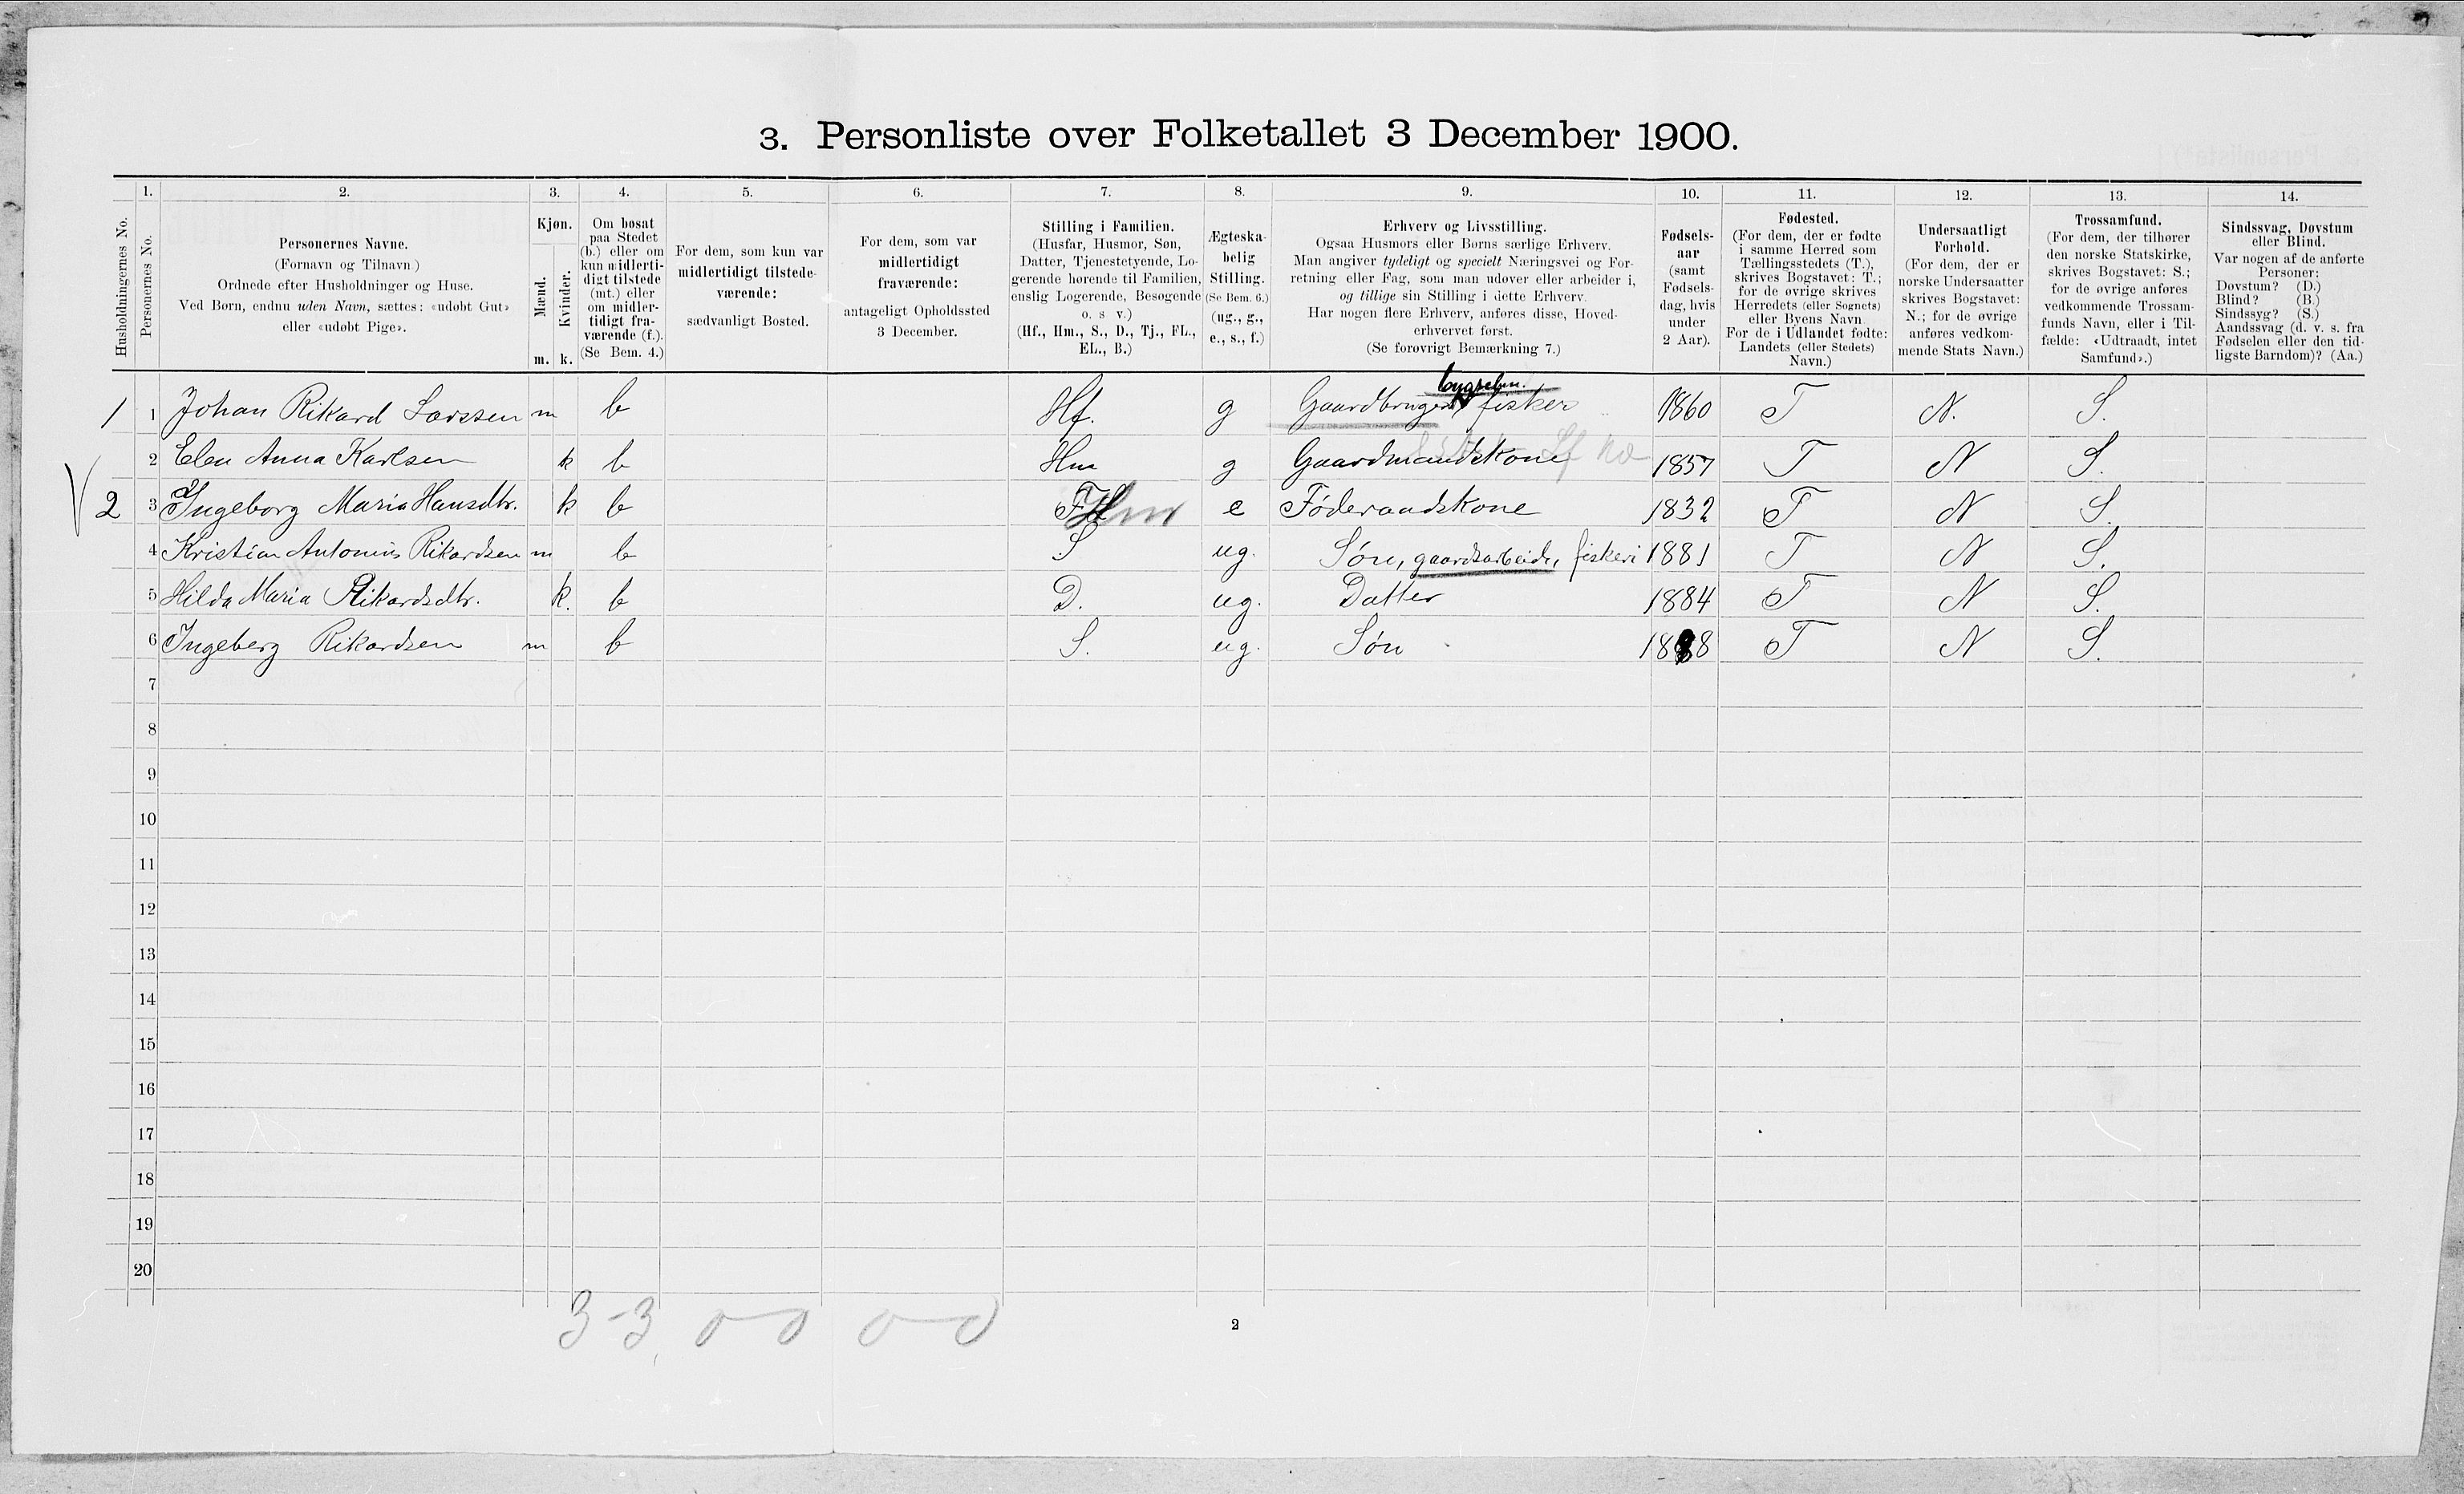 3. Personliste over Folketallet 3 December 1900.
1. 2. 3. 4. 5. 6. 7. 8. 9. 10. 11. 12. 13. 14.
Husholdningernes No.
Personernes No.
Personernes Navne.
(Fornavn og Tilnavn.)
Ordnede efter Husholdninger og Huse.
Ved Børn, endnu uden Navn, sættes: «udøbt Gut»
eller «udøbt Pige».
Kjøn.
Mænd.
Kvinder.
m. k.
Om bosat
paa Stedet
(b.) eller om
kun midlerti-
digt tilstede
(mt.) eller
om midler-
tidigt fra-
værende (f.).
(Se Bem. 4.)
For dem, som kun var
midlertidigt tilstede-
værende:
sædvanligt Bosted.
For dem, som var
midlertidigt
fraværende:
antageligt Opholdssted
3 December.
Stilling i Familien.
(Husfar, Husmor, Søn,
Datter, Tjenestetyende, Lo-
gerende hørende til Familien,
enslig Logerende, Besøgende
o. s v.)
(Hf., Hm., S., D., Tj., FL.,
EL., B.)
Ægteska-
belig
Stilling.
(Se Bem. 6.)
(ug., g.,
e., s., f.)
Erhverv og Livsstilling.
Ogsaa Husmors eller Børns særlige Erhverv.
Man angiver tydeligt og specielt Næringsvei og For-
retning eller Fag, som man udøver eller arbeider i,
og tillige sin Stilling i dette Erhverv.
Har nogen flere Erhverv, anføres disse, Hoved-
erhvervet først.
(Se forøvrigt Bemærkning 7.)
Fødsels-
aar
(samt
Fødsels-
dag, hvis
under
2 Aar).
Fødested.
(For dem, der er fødte
i samme Herred som
Tællingsstedets (T.),
skrives Bogstavet: T.;
for de øvrige skrives
Herredets (eller Sognets)
eller Byens Navn.
For de i Udlandet fødte:
Landets (eller Stedets)
Navn.)
Undersaatligt
Forhold.
(For dem, der er
norske Undersaatter
skrives Bogstavet:
N.; for de øvrige
anføres vedkom-
mende Stats Navn.)
Trossamfund.
(For dem, der tilhører
den norske Statskirke,
skrives Bogstavet: S.;
for de øvrige anføres
vedkommende Trossam-
funds Navn, eller i Til-
fælde: «Udtraadt, intet
Samfund».)
Sindssvag, Døvstum
eller Blind.
Var nogen af de anførte
Personer:
Døvstum? (D.)
Blind? (B.)
Sindssyg? (S.)
Aandssvag (d. v. s. fra
Fødselen eller den tid-
ligste Barndom)? (Aa.)
bygselm.
1 1 Johan Rikard Larssen m b Hf. g Gaardbruger fisker 1860 T N. S.
2 Elen Anna Karlsen k b Hm g Gaardmandskone 1857 T N S.
2 3 Ingeborg Maria Hansdtr. k b Hm e Føderaadskone 1832 T N S.
4 Kristian Antonius Rikardsen m b S ug. Søn, gaardsarbeide, fiskeri 1881 T N S.
5 Hilda Maria Rikardsdtr. k. b D. ug. Datter 1884 T N S.
6 Ingeberg Rikardsen m b S. ug. Søn 1888 T N S.
7
8
9
10
11
12
13
14
15
16
17
18
19
20
3-3 0 0 0 0
2